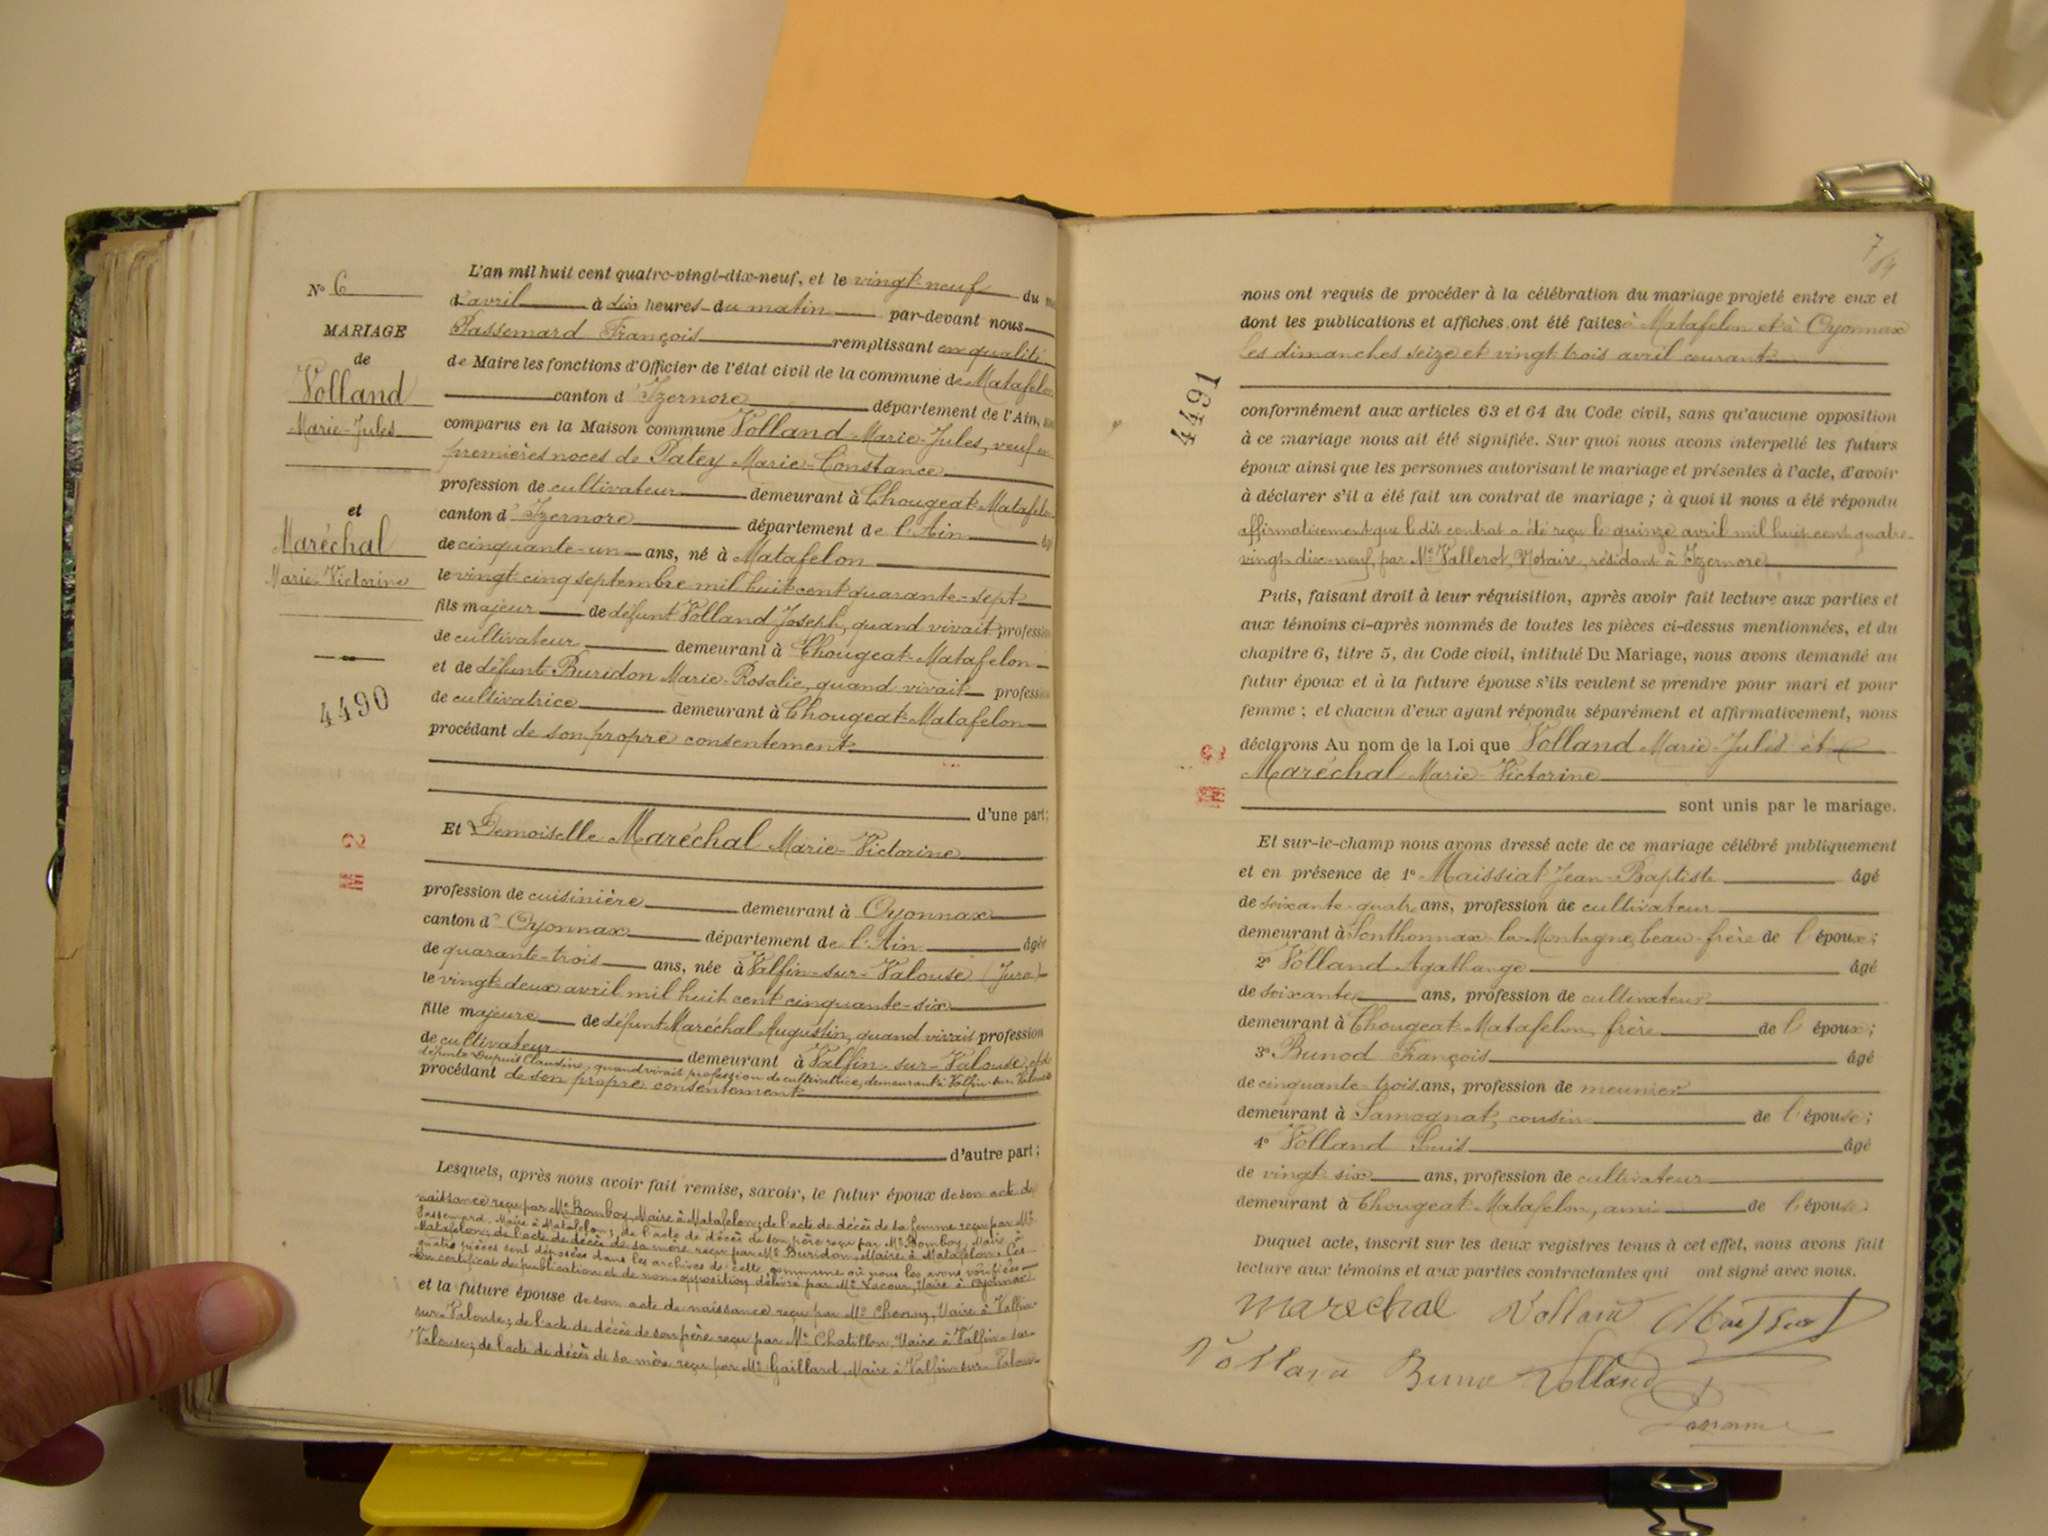 N° 6
MARIAGE
de
Volland
Marie-Jules
et
Maréchal
Marie-Victorine
4490
L'an mil huit cent quatre-vingt-dix-neuf, et le vingt-neuf du
d'avril à dix heures du matin par-devant nous
Passemard François remplissant en qualité
de Maire les fonctions d'Officier de l'état civil de la commune de Matafelon
canton d'Izernore département de l'Ain,
comparus en la Maison commune Volland Marie-Jules, veuf en
premières noces de Patey Marie-Constance
profession de cultivateur demeurant à Chougeat-Matafelon
canton d'Izernore département de l'Ain
de cinquante-un ans, né à Matafelon
le vingt-cinq septembre mil huit cent quarante-sept
fils majeur de défunt Volland Joseph, quand vivait profession
de cultivateur demeurant à Chougeat-Matafelon
et de défunte Buridon Marie-Rosalie, quand vivait profession
de cultivatrice demeurant à Chougeat-Matafelon
procédant de son propre consentement
d'une part;
Et Demoiselle Maréchal Marie-Victorine
profession de cuisinière demeurant à Oyonnax
canton d'Oyonnax département de l'Ain âgée
de quarante-trois ans, née à Valfin-sur-Valouse (Jura)
le vingt-deux avril mil huit cent cinquante-six
fille majeure de défunt Maréchal Augustin, quand vivait profession
de cultivateur demeurant à Valfin-sur-Valouse et de
défunte Dupuis Claudine, quand vivait profession de cultivatrice, demeurant à Valfin-sur-Valouse
procédant de son propre consentement
d'autre part;
Lesquels, après nous avoir fait remise, savoir, le futur époux de son acte de
naissance reçu par Me Bomboy, Maire à Matafelon; de l'acte de décès de sa femme reçu par Me
Passemard, Maire à Matafelon; de l'acte de décès de son père reçu par Me Bomboy, Maire à
Matafelon; de l'acte de décès de sa mère reçu par Me Buridon, Maire à Matafelon. Ces
quatre pièces sont déposées dans les archives de cette commune où nous les avons vérifiées
Un certificat de publication et de non opposition délivré par Me Lacour, Maire à Oyonnax
et la future épouse de son acte de naissance reçu par Me Maire à Valfin-
sur-Valouse; de l'acte de décès de son père reçu par Me Chatillon, Maire à Valfin-sur-
Valouse; de l'acte de décès de sa mère reçu par Me Gaillard, Maire à Valfin-sur-Valouse
4491
nous ont requis de procéder à la célébration du mariage projeté entre eux et
dont les publications et affiches ont été faites à Matafelon et à Oyonnax
les dimanches seize et vingt-trois avril courant
conformément aux articles 63 et 64 du Code civil, sans qu'aucune opposition
à ce mariage nous ait été signifiée. Sur quoi nous avons interpellé les futurs
époux ainsi que les personnes autorisant le mariage et présentes à l'acte, d'avoir
à déclarer s'il a été fait un contrat de mariage; à quoi il nous a été répondu
affirmativement que le dit contrat a été reçu le quinze avril mil huit cent quatre-
vingt-dix-neuf, par Me Vallerot, Notaire, résidant à Izernore
Puis, faisant droit à leur réquisition, après avoir fait lecture aux parties et
aux témoins ci-après nommés de toutes les pièces ci-dessus mentionnées, et du
chapitre 6, titre 5, du Code civil, intitulé Du Mariage, nous avons demandé au
futur époux et à la future épouse s'ils veulent se prendre pour mari et pour
femme; et chacun d'eux ayant répondu séparément et affirmativement, nous
déclarons Au nom de la Loi que Volland Marie-Jules et
Maréchal Marie-Victorine
sont unis par le mariage.
Et sur-le-champ nous avons dressé acte de ce mariage célébré publiquement
et en présence de 1° Maissiat Jean-Baptiste âgé
de soixante-quatre ans, profession de cultivateur
demeurant à Sonthonnax-la-Montagne, beau-frère de l'époux;
2° Volland Agathange âgé
de soixante ans, profession de cultivateur
demeurant à Chougeat-Matafelon, frère de l'époux;
3° Bunod François âgé
de cinquante-trois ans, profession de meunier
demeurant à Samognat, cousin de l'épouse;
4° Volland Louis âgé
de vingt-six ans, profession de cultivateur
demeurant à Chougeat-Matafelon, ami de l'épouse
Duquel acte, inscrit sur les deux registres tenus à cet effet, nous avons fait
lecture aux témoins et aux parties contractantes qui ont signé avec nous.
Marechal Volland Maissiat
Volland Volland